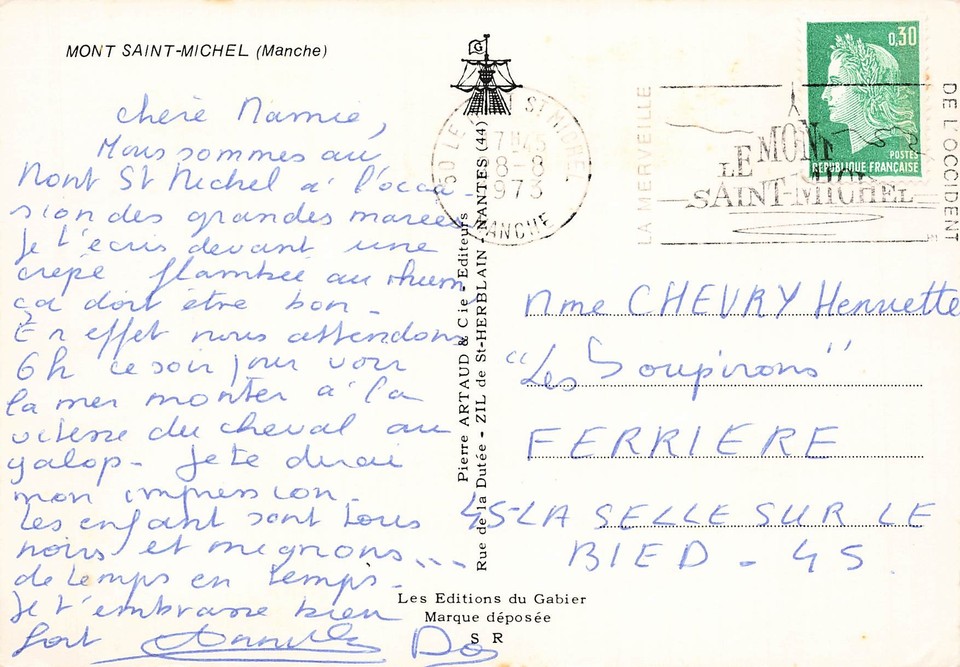 MONT SAINT-MICHEL (Manche)
chère Mamie,
Nous sommes au
Mont St Michel à l'occa-
sion des grandes marées
Je t'écris devant une
crêpe flambée au rhum
ça doit être bon.
En effet nous attendons
6h ce soir pour voir
la mer monter à la
vitesse du cheval au
galop. Je te dirai
mon impression.
Les enfant sont tous
noirs et mignons...
de temps en temps.
Je t'embrasse bien
fort
G
Pierre ARTAUD & Cie - Editeurs
Rue de la Dutée - ZIL de St-HERBLAIN - NANTES (44)
Les Editions du Gabier
Marque déposée
S R
50 LE MONT ST MICHEL
17H45
8-8
1973
MANCHE
LA MERVEILLE
LE MONT
SAINT-MICHEL
DE L'OCCIDENT
0,30
POSTES
RÉPUBLIQUE FRANÇAISE
Mme CHEVRY Henriette
"Les Soupirons"
FERRIERE
45-LA SELLE SUR LE
BIED - 45